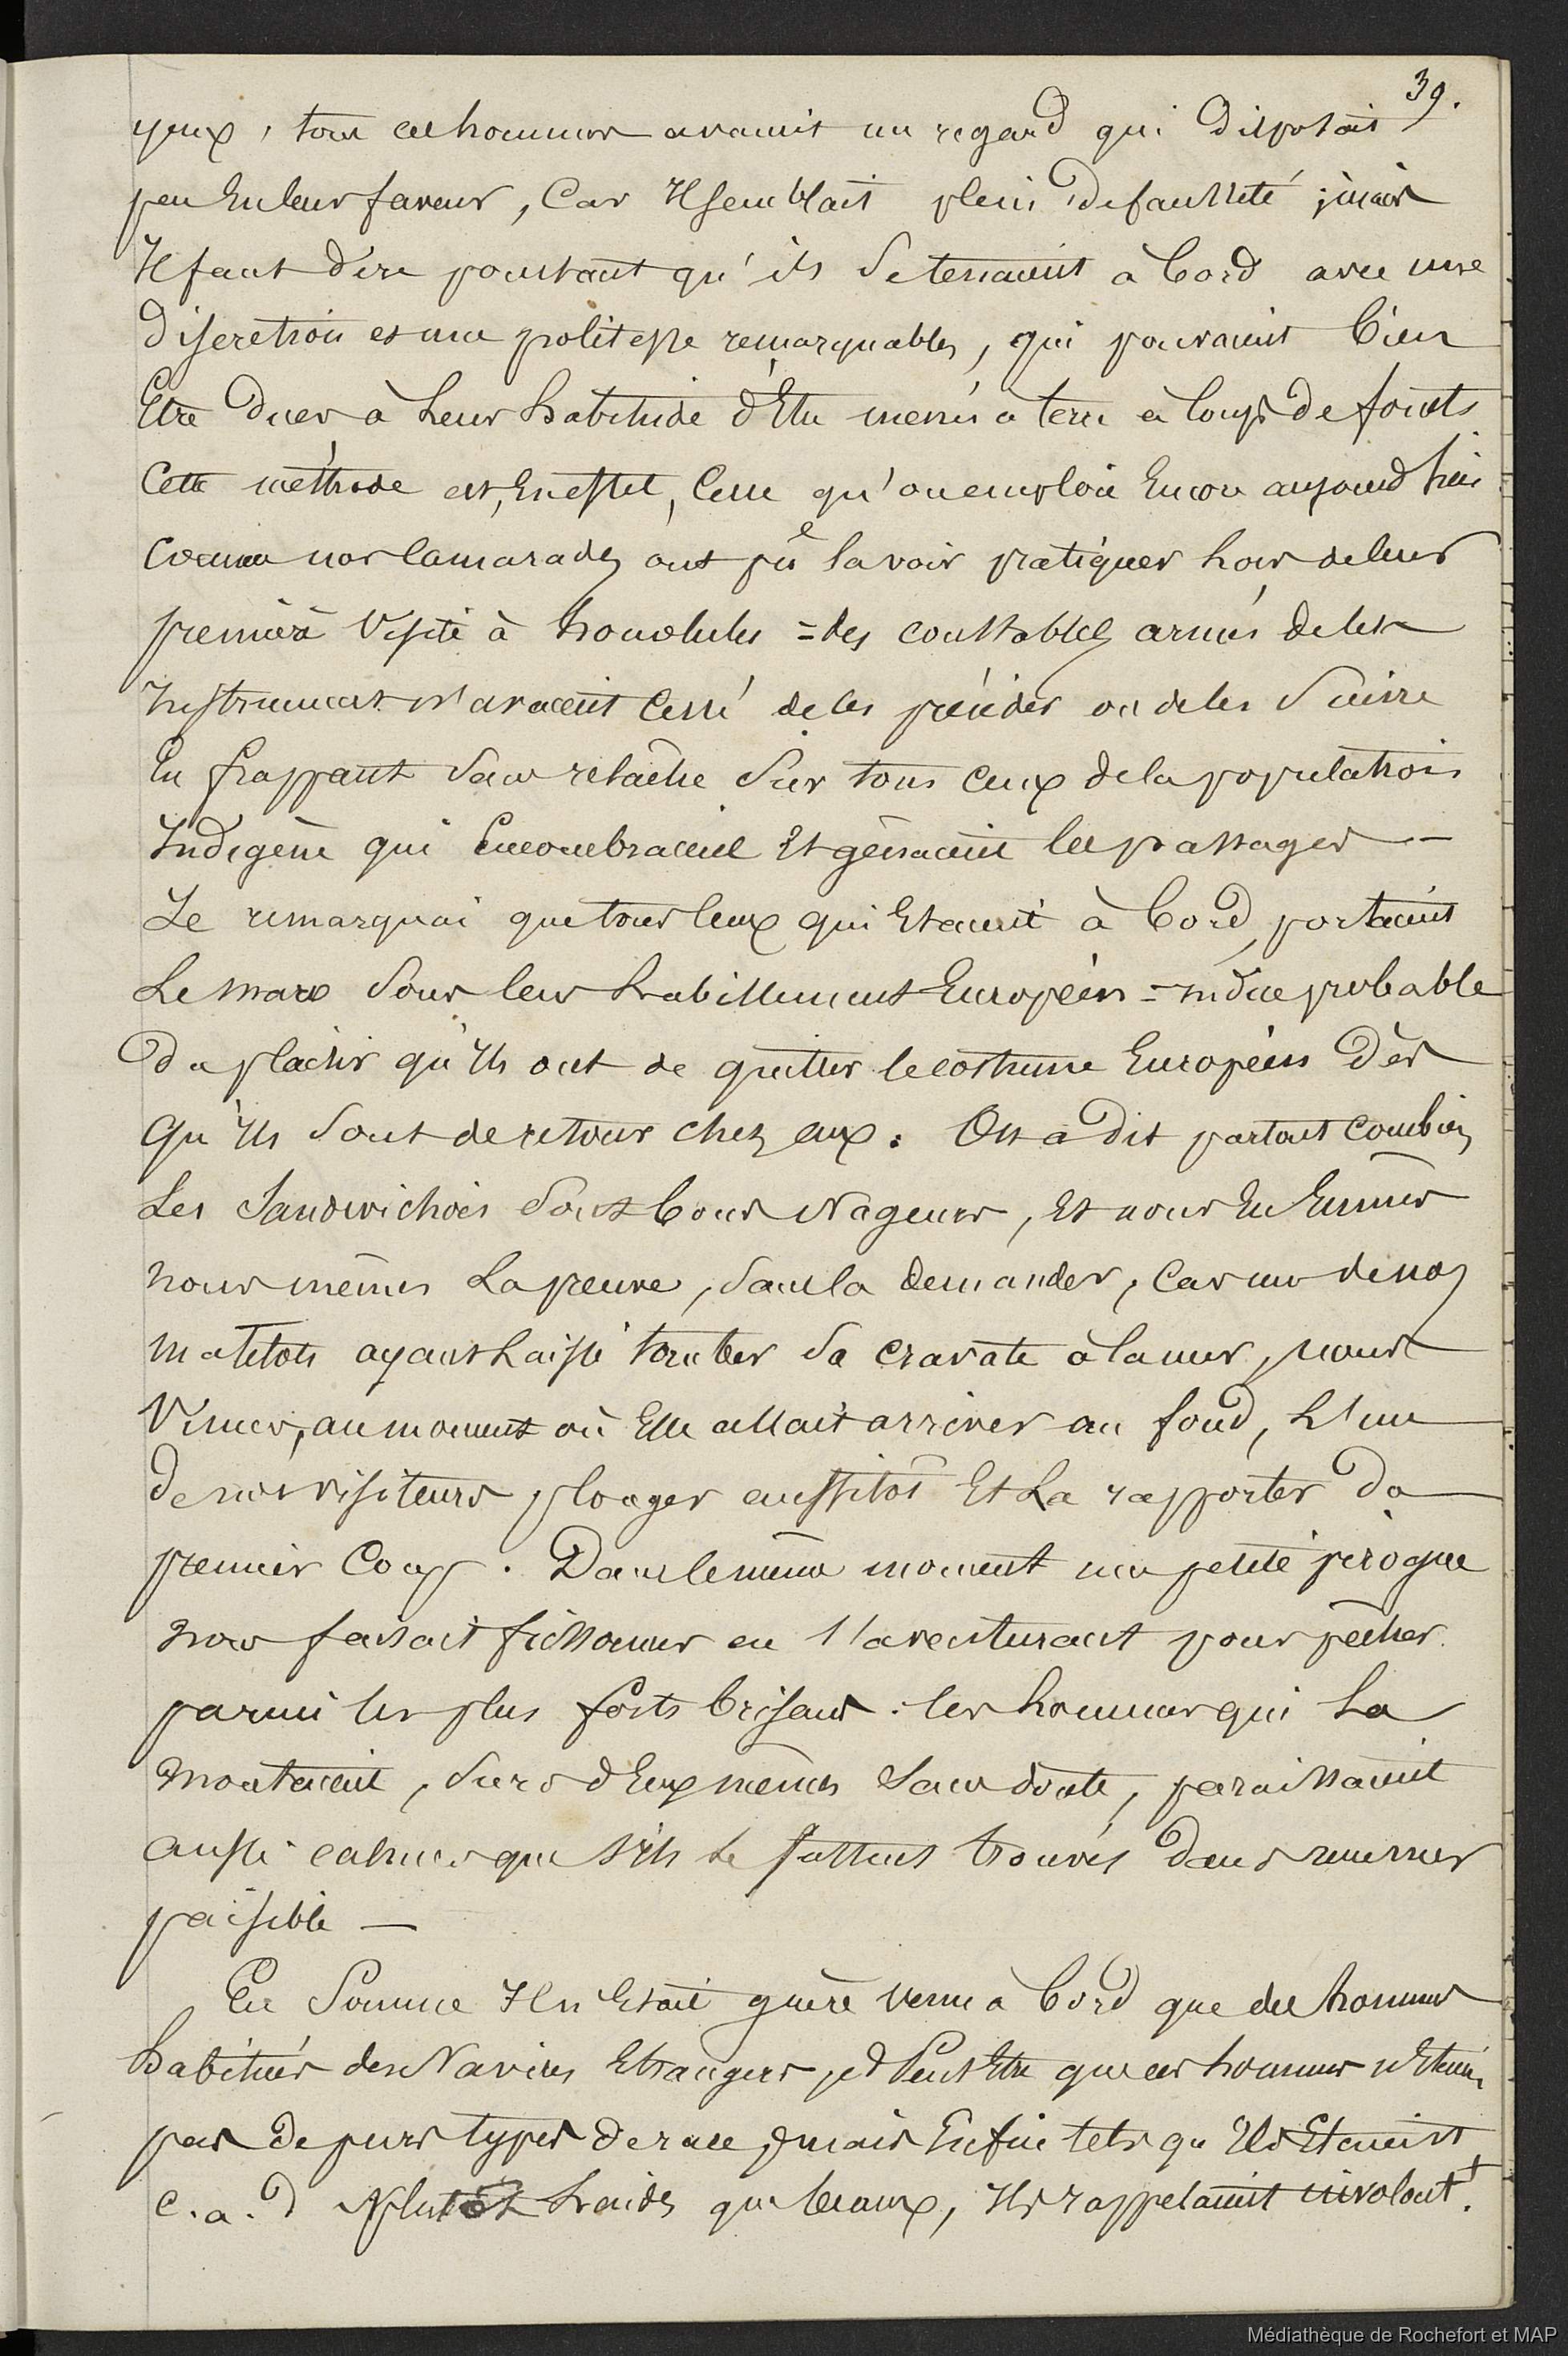 39.
yeux, tous ces hommes avaient un regard qui disposait
peu En leur faveur, Car Il semblait plein de fausseté ; mais
Il faut dire pourtant qu'ils Se tenaient à bord avec une
discretion et une politesse remarquables, qui pouvaient bien
Etre dues à Leur habitude d'Etre menés à terre à Coups de fouets
Cette méthode est, En effet, Celle qu'on emploie Encore aujourd'hui
Comme nos Camarades ont pû la voir pratiquer lors de leur
première Visite à honolulu = des constables armés de les
Instruments n'avaient Cessé de les précéder ou de les Suivre
En frappant Sans relâche Sur tous Ceux de la population
Indigène qui Encombraient Et gênaient les passages —
Je remarquai que tous Ceux qui Etaient à bord, portaient
Le maro Sous leur habillement Européen = indice probable
du plaisir qu'Ils ont de quitter le costume Européen dès
Qu'Ils Sont de retour chez eux. On a dit partout combien
Les Sandwichois Sont bons Nageurs, Et nous En Eumes
nous mêmes La preuve, Sans la demander, Car un de nos
matelots ayant Laissé tomber Sa cravate à la mer, nous
Vimes, au moment où Elle allait arriver au fond, L'un
de nos visiteurs plonger aussitôt Et La rapporter du
premier Coup. Dans le même moment une petite pirogue
nous faisait frissonner en s'aventurant pour pêcher
parmi les plus forts brisans. les hommes qui La
montaient, Surs d'Eux mêmes Sans doute, paraissaient
aussi calmes que s'ils Se fussent trouvés dans une mer
paisible —
En Somme Il n'Etait guère venu à bord que des hommes
habitués des Navires Etrangers, et Peut Etre que ces hommes n'Etaient
pas de purs types de race, mais Enfin tels qu'Ils Etaient,
c.a.d plutôt Laids que beaux, Ils rappelaient involont.t
Médiathèque de Rochefort et MAP